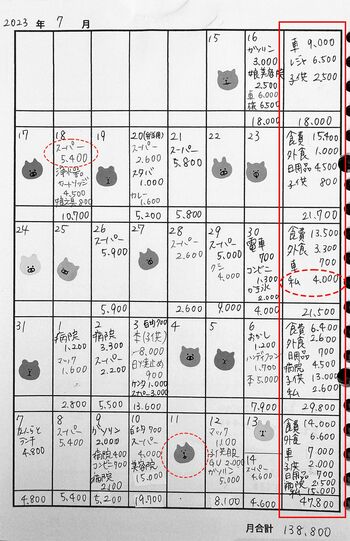 2023 年 7 月
15
16
ガソリン
3.000
娘美容院
2.500
車 6.000
横 6500
18.000
車 9.000
レジャー 6.500
子供 2500
18.000
17
18
スーパー
5.400
浄水器の
カートリッジ
4.500
娘文具 800
10.700
19
20
スーパー
2.600
スタバ
1.000
カレー
1.600
5.200
21
スーパー
5.800
5.800
22
23
食費 15.400
外食 1.000
日用品 4500
子供 800
21.700
24
25
26
スーパー
5.900
5.900
27
28
スーパー
2.600
2.600
29
スーパー
5.000
4.000
9.000
30
電車
700
コンビニ
1.300
2.000
4.000
食費 13.500
外食 3.300
車 700
私 4.000
21.500
31
1
病院
1.200
マック
1.600
2.800
2
病院
3.300
スーパー
2.200
5.500
3
8.000
900
スーパー 3.000
13.600
4
5
6
おかし
1.200
ハンディファン
1.700
本 5.000
7.900
食費 6.400
外食 2.600
日用品 700
病院 4.500
子供 13.000
私 2.600
29.800
7
ランチ
4.800
4.800
8
スーパー
5.400
5.400
9
ガソリン
2.000
病院 400
コンビニ 700
5.200
10
スーパー
4.000
美容院
15.000
19.700
11
12
マック
1.100
GU 2.000
ガソリン
8.100
13
14
スーパー
4.600
4.600
食費 14.000
外食 6.600
車 7.000
子供 2.000
日用品 700
私 15.000
47.800
月合計 138,800